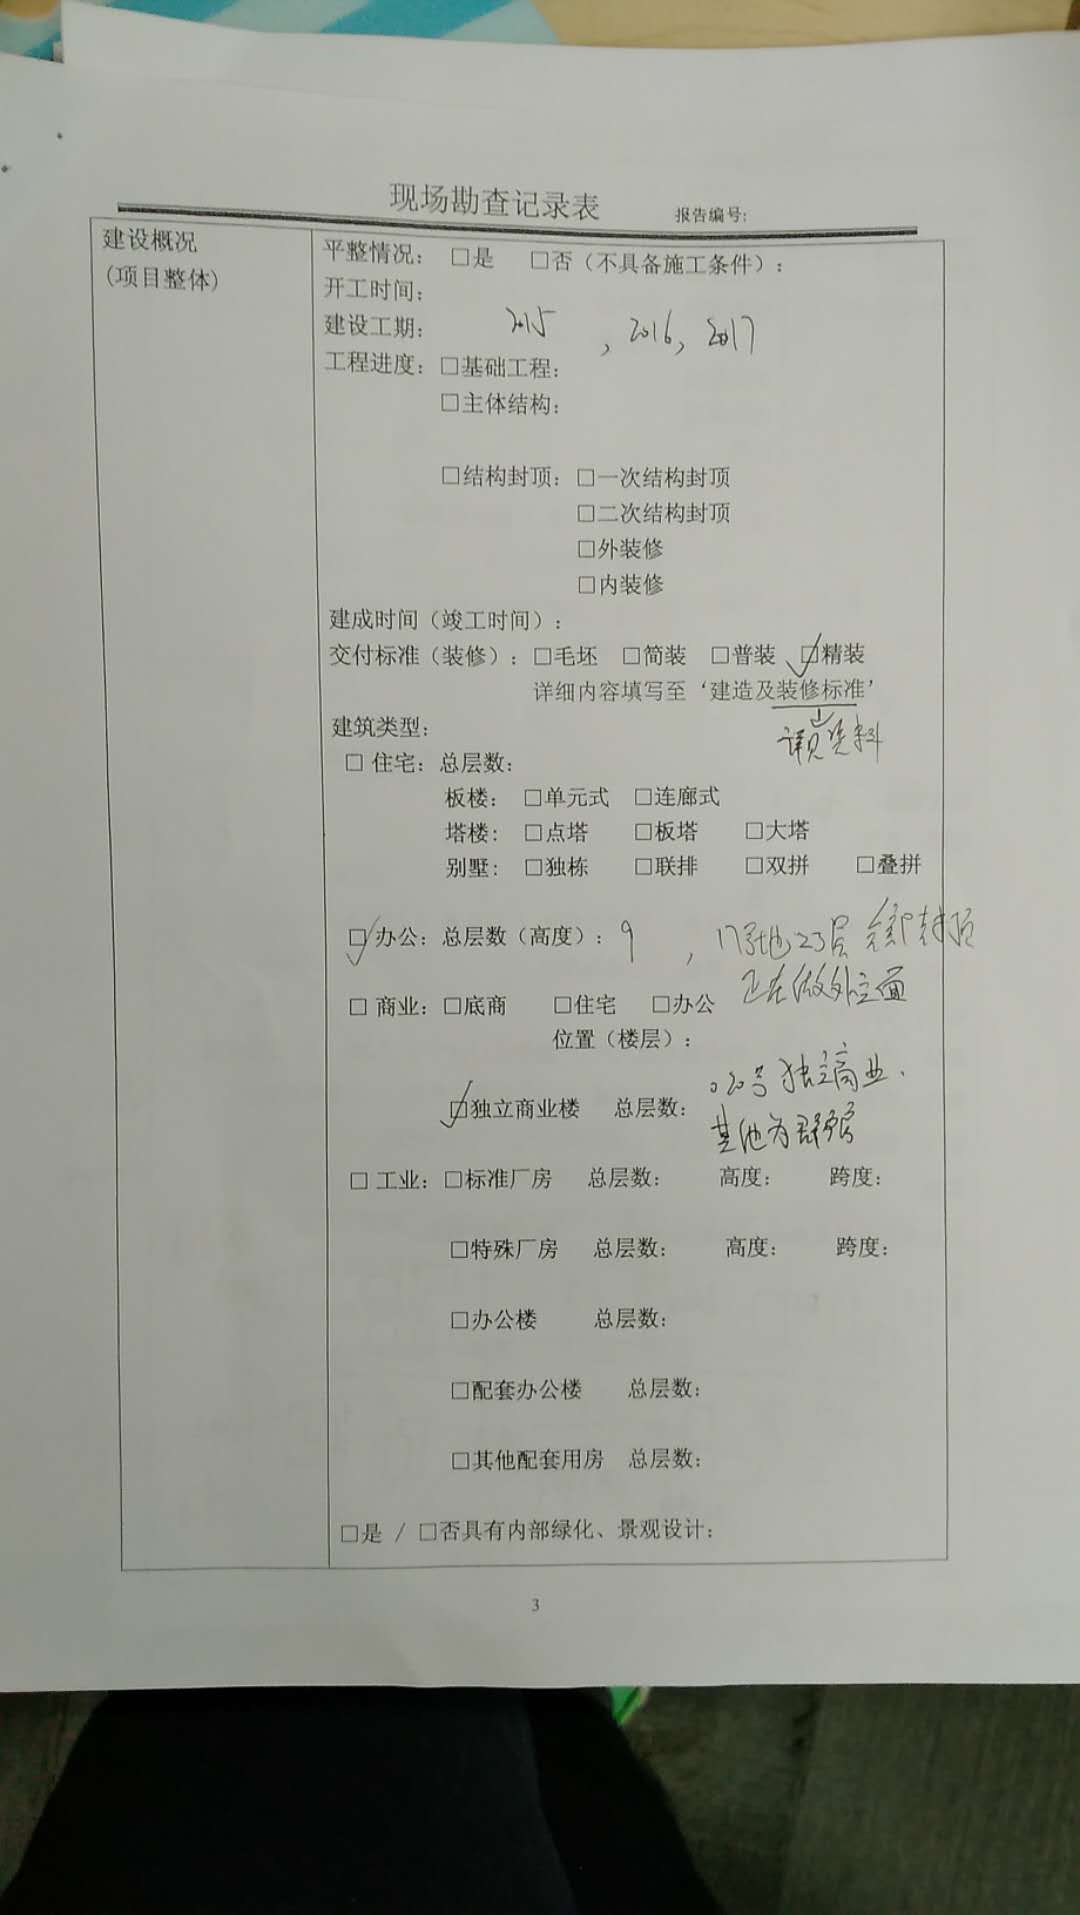 现场勘查记录表 报告编号:
建设概况
(项目整体)
平整情况: □是 □否(不具备施工条件):
开工时间:
建设工期: 2015, 2016, 2017
工程进度: □基础工程:
□主体结构:
□结构封顶: □一次结构封顶
□二次结构封顶
□外装修
□内装修
建成时间(竣工时间):
交付标准(装修): □毛坯 □简装 □普装 ☑精装
详细内容填写至‘建造及装修标准’
详见资料
建筑类型:
□ 住宅: 总层数:
板楼: □单元式 □连廊式
塔楼: □点塔 □板塔 □大塔
别墅: □独栋 □联排 □双拼 □叠拼
☑ 办公: 总层数(高度): 9, 17号地23层 封顶
正在做外立面
□ 商业: □底商 □住宅 □办公
位置(楼层):
☑独立商业楼 总层数: 020号独立商业.
其他为群房
□ 工业: □标准厂房 总层数: 高度: 跨度:
□特殊厂房 总层数: 高度: 跨度:
□办公楼 总层数:
□配套办公楼 总层数:
□其他配套用房 总层数:
□是 / □否具有内部绿化、景观设计:
3